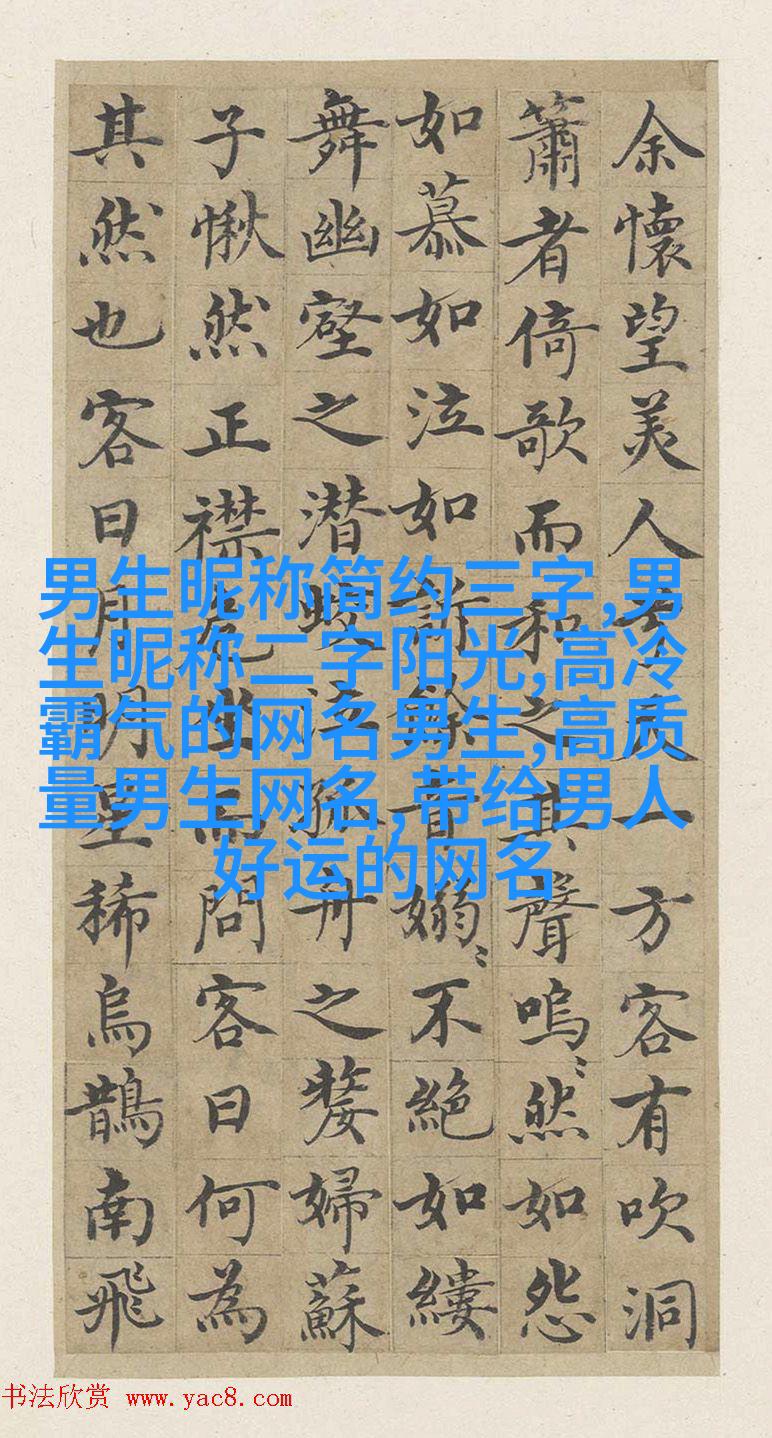 余懷望美人兮天一方客有吹洞
簫者倚歌而和之其聲嗚〻然如怨
如慕如泣如訴餘音嫋〻不絕如縷
舞幽壑之潜蛟泣孤舟之嫠婦蘇
子愀然正襟危坐而問客曰何為
其然也客曰月明星稀烏鵲南飛
男生昵称简约三字,男
生昵称二字阳光,高冷
霸气的网名男生,高质
量男生网名,带给男人
好运的网名
书法欣赏 www.yac8.com